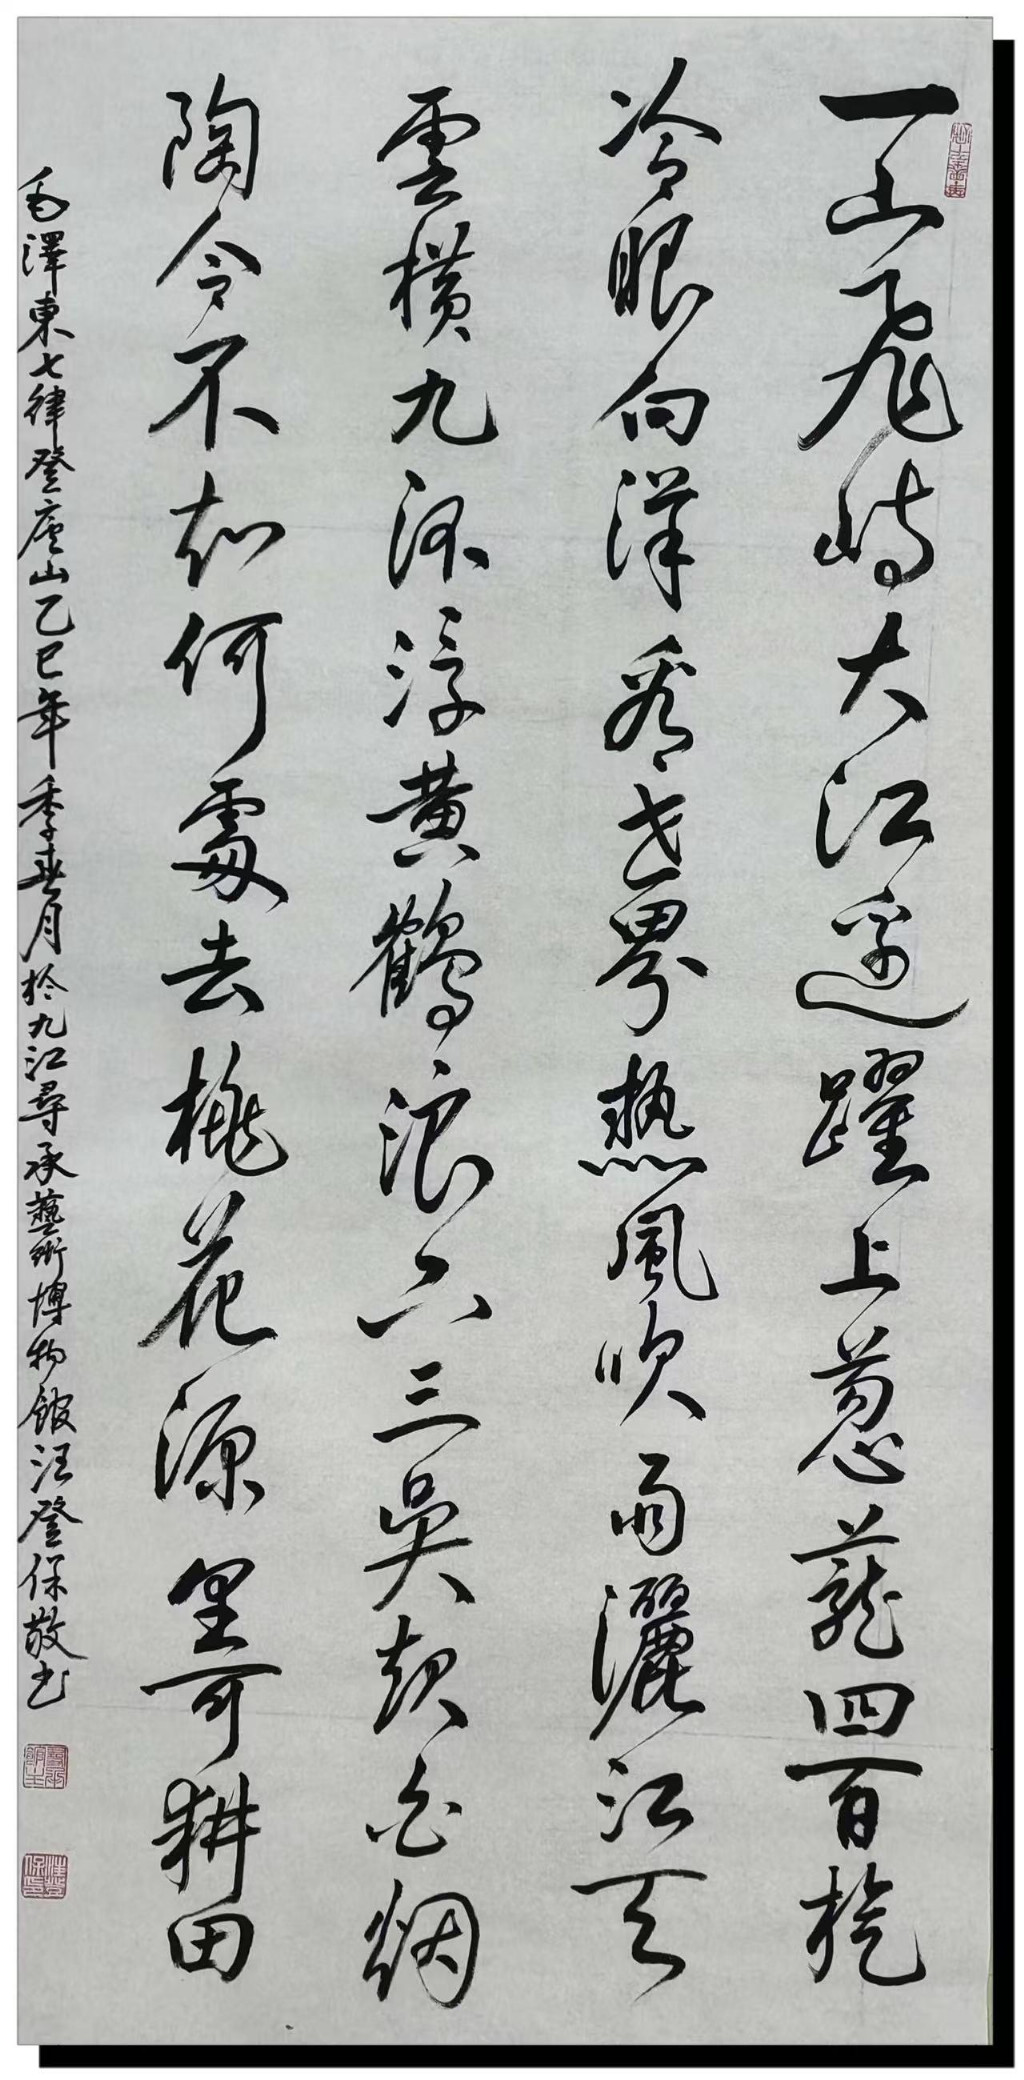 一山飛峙大江邊躍上葱蘢四百旋
冷眼向洋看世界熱風吹雨灑江天
雲横九派浮黄鶴浪下三吳起白烟
陶令不知何處去桃花源里可耕田
毛澤東七律登廬山乙巳年季春月於九江尋承藝術博物館汪登保敬书